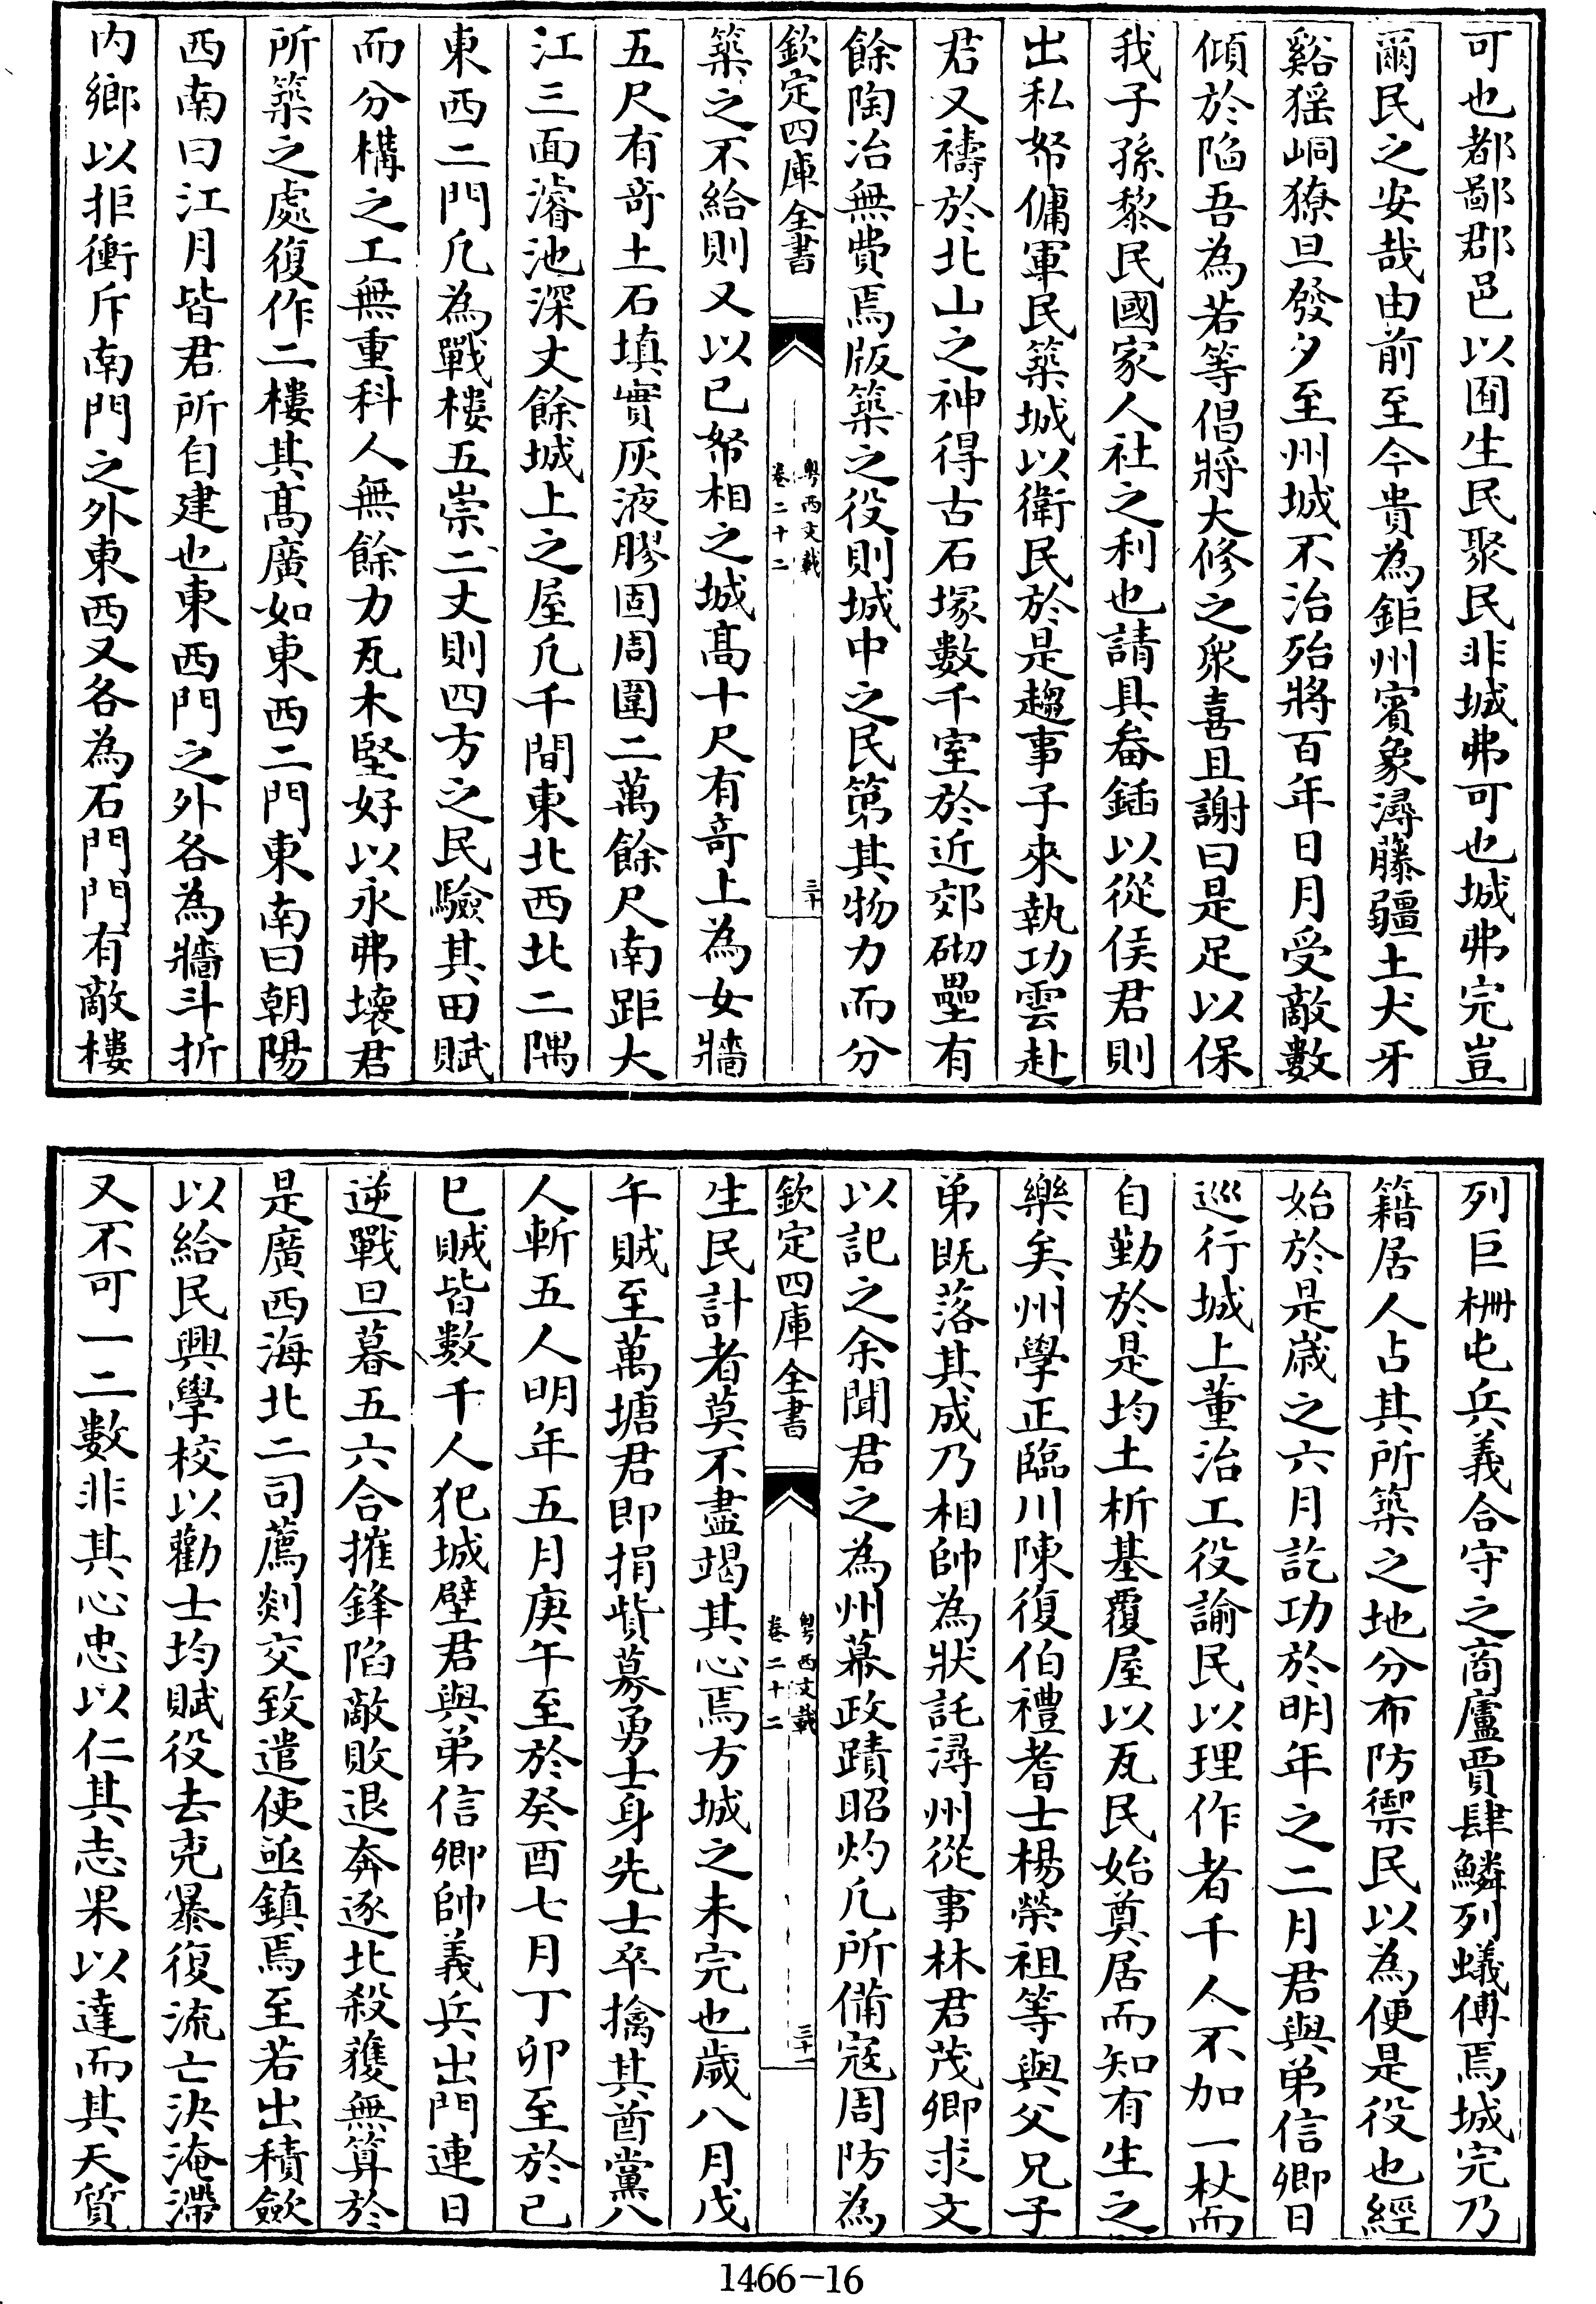 可也都鄙郡邑以囿生民聚民非城弗可也城弗完豈
爾民之安哉由前至今貴為鉅州賓象潯藤疆土犬牙
谿猺峒獠旦發夕至州城不治殆將百年日月受敵數
傾於陷吾為若等倡將大修之衆喜且謝曰是足以保
我子孫黎民國家人社之利也請具畚鍤以從侯君則
出私帑傭軍民築城以衛民於是趨事子來執功雲赴
君又禱於北山之神得古石塚數千室於近郊砌壘有
餘陶冶無費焉版築之役則城中之民第其物力而分
欽定四庫全書
粤西文載
卷二十二
三十
築之不給則又以已帑相之城髙十尺有竒上為女牆
五尺有竒土石填實灰液膠固周圍二萬餘尺南距大
江三面濬池深丈餘城上之屋凡千間東北西北二隅
東西二門凡為戰樓五崇二丈則四方之民驗其田賦
而分構之工無重科人無餘力瓦木堅好以永弗壞君
所築之處復作二樓其髙廣如東西二門東南曰朝陽
西南曰江月皆君所自建也東西門之外各為牆斗折
内鄉以拒衝斥南門之外東西又各為石門門有敵樓
列巨柵屯兵義合守之商廬賈肆鱗列蟻傅焉城完乃
籍居人占其所築之地分布防禦民以為便是役也經
始於是歳之六月訖功於明年之二月君與弟信卿日
巡行城上董治工役諭民以理作者千人不加一杖而
自勤於是均土析基覆屋以瓦民始奠居而知有生之
樂矣州學正臨川陳復伯禮耆士楊榮祖等與父兄子
弟既落其成乃相帥為狀託潯州從事林君茂卿求文
以記之余聞君之為州幕政蹟昭灼凡所備寇周防為
欽定四庫全書
粤西文載
卷二十二
三十一
生民計者莫不盡竭其心焉方城之未完也歲八月戊
午賊至萬塘君即捐貲募勇士身先士卒擒其酋黨八
人斬五人明年五月庚午至於癸酉七月丁卯至於已
巳賊皆數千人犯城壁君與弟信卿帥義兵出門連日
逆戰旦暮五六合摧鋒陷敵敗退奔逐北殺獲無算於
是廣西海北二司薦剡交致遣使亟鎮焉至若出積歛
以給民興學校以勸士均賦役去兇暴復流亡決淹滯
又不可一二數非其心忠以仁其志果以達而其天質
1466-16